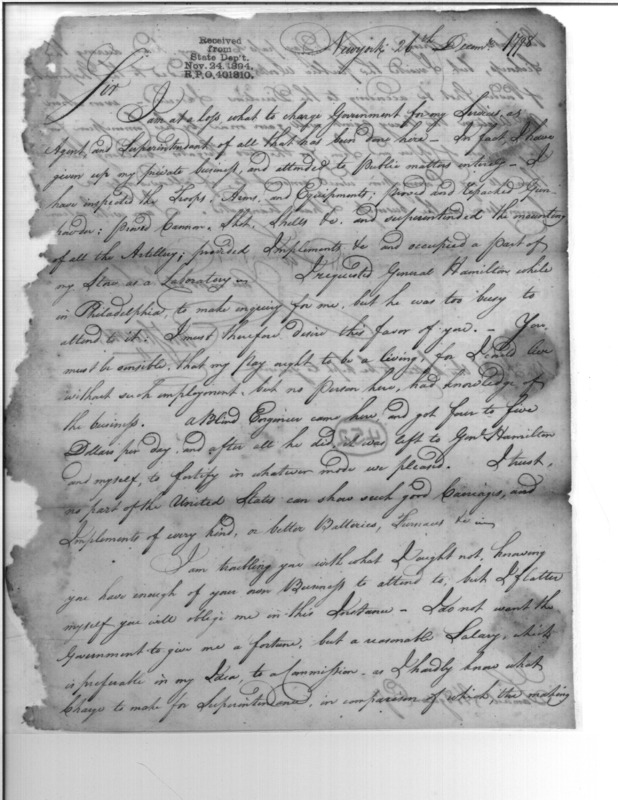 Received
from
State Dep't.
Nov. 24. 1894.
R.P.O. 401810.
New york 26th Decemr. 1798
Sir
I am at a loss what to charge Government for my Services, as
Agent, and Superintendant of all that has been done here – In fact I have
given up my private business, and attended to Public matters entirely – I
have inspected the Troops, Arms, and Equipments; proved and repacked Gun
powder; proved Cannon, Shot, Shells &c. and superintended the mounting
of all the Artillery; provided Implements &c and occupied a part of
my Store as a Laboratory – I requested General Hamilton while
in Philadelphia, to make enquiry for me, but he was too busy to
attend to it. I must therefore desire this favor of you. – You
must be sensible, that my pay ought to be a living, for I could live
without such employment, but no Person here, had knowledge of
the business. A Blind Engineer came here and got four to five
Dollars per day, and after all he did, it was left to Genl. Hamilton
and myself, to fortify in whatever mode we pleased. I trust,
no part of the United States can show such good Carriages, and
Implements of every kind, or better Batteries, Furnaces &c –
I am troubling you with what I ought not, knowing
you have enough of your own Business to attend to, but I flatter
myself you will oblige me in this Instance – I do not want the
Government to give me a fortune, but a reasonable Salary, which
is preferable in my Idea, to a Commission – as I hardly know what
Charge to make for Superintendance, in comparison of which, the making